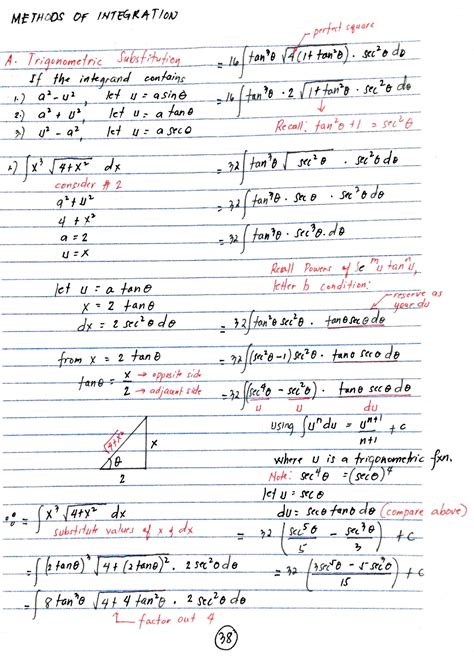 METHODS OF INTEGRATION
A. Trigonometric Substitution
If the integrand contains
1.) a² - u², let u = a sinθ
2.) a² + u², let u = a tanθ
3.) u² - a², let u = a secθ
1.) ∫ x³ √(4+x²) dx
consider # 2
a² + u²
4 + x²
a = 2
u = x
let u = a tanθ
x = 2 tanθ
dx = 2 sec²θ dθ
from x = 2 tanθ
tanθ = x/2
→ opposite side
→ adjacent side
√(4+x²)
x
θ
2
∴ = ∫ x³ √(4+x²) dx
substitute values of x & dx
= ∫ (2 tanθ)³ √(4 + (2 tanθ)²) · 2 sec²θ dθ
= ∫ 8 tan³θ √(4 + 4 tan²θ) · 2 sec²θ dθ
factor out 4
perfect square
= 16 ∫ tan³θ √(4(1 + tan²θ)) · sec²θ dθ
= 16 ∫ tan³θ · 2 √(1 + tan²θ) · sec²θ dθ
Recall: tan²θ + 1 = sec²θ
= 32 ∫ tan³θ √(sec²θ) · sec²θ dθ
= 32 ∫ tan³θ · secθ · sec²θ dθ
= 32 ∫ tan³θ · sec³θ · dθ
Recall Powers of Se^m u tan^n u,
letter b condition:
reserve as your du
= 32 ∫ tan²θ sec²θ · tanθ secθ dθ
= 32 ∫ (sec²θ - 1) sec²θ · tanθ secθ dθ
= 32 ∫ (sec⁴θ - sec²θ) · tanθ secθ dθ
u u du
using ∫ uⁿ du = u^(n+1)/(n+1) + c
where u is a trigonometric fxn.
Note: sec⁴θ = (secθ)⁴
let u = secθ
du = secθ tanθ dθ (compare above)
= 32 (sec⁵θ/5 - sec³θ/3) + c
= 32 (3sec⁵θ - 5sec³θ / 15) + c
38